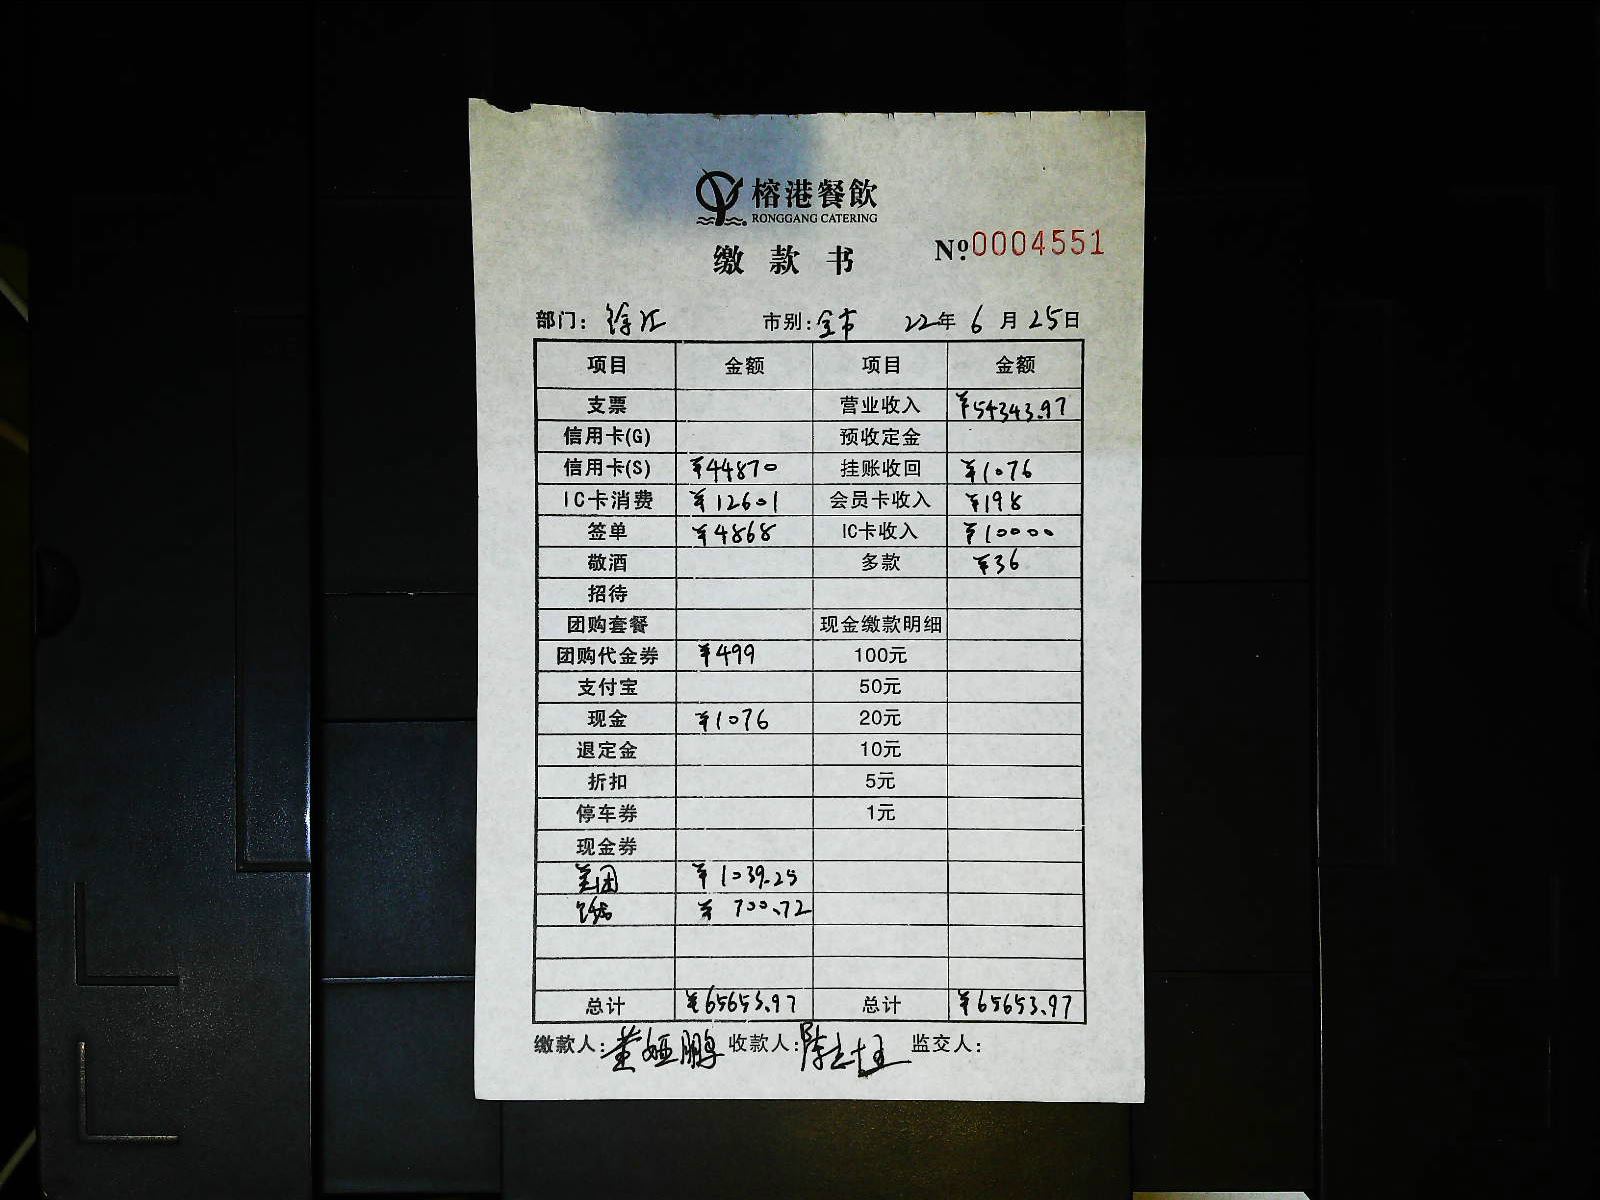 榕港餐飲
RONGGANG CATERING
缴款书 №0004551
部门：徐汇 市别：全市 22年6月25日
项目 金额 项目 金额
支票 营业收入 ¥54343.97
信用卡(G) 预收定金
信用卡(S) ¥44870 挂账收回 ¥1076
IC卡消费 ¥12601 会员卡收入 ¥198
签单 ¥4868 IC卡收入 ¥10000
敬酒 多款 ¥36
招待
团购套餐 现金缴款明细
团购代金券 ¥499 100元
支付宝 50元
现金 ¥1076 20元
退定金 10元
折扣 5元
停车券 1元
现金券
美团 ¥1039.25
¥700.72
总计 ¥65653.97 总计 ¥65653.97
缴款人：董娅鹏 收款人：陈 监交人：